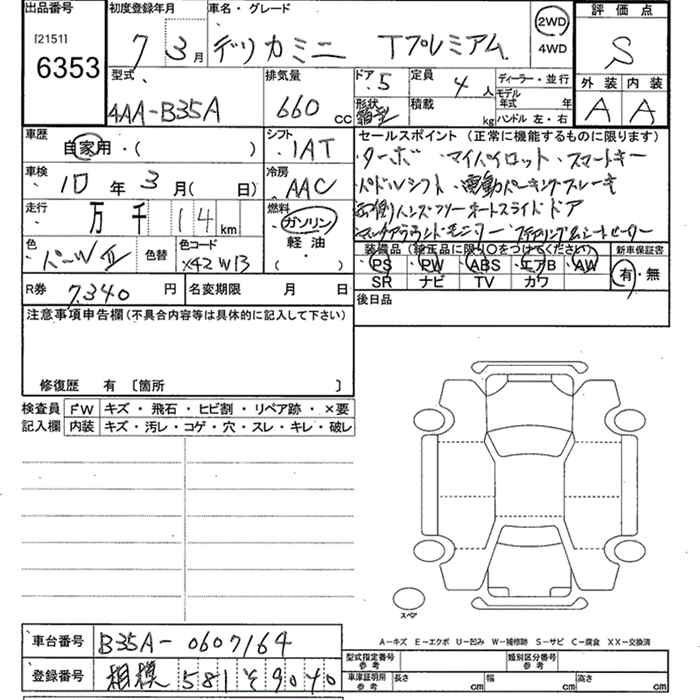 出品番号 初度登録年月 車名・グレード 評価点
[2151] 6353 7 3月 デリカミニ Tプレミアム 2WD 4WD S
型式 排気量 ドア 5 定員 4人 ディーラー・並行 外装 内装
4AA-B35A 660cc 形状 箱型 積載 kg モデル年式 年 ハンドル 左・右 A A
車歴 自家用・( ) シフト IAT セールスポイント (正常に機能するものに限ります)
車検 10年3月(日) 冷房 AAC ・ターボ ・マイパイロット ・スマートキー
・パドルシフト ・電動パーキングブレーキ
走行 万 千 14km 燃料 ガソリン 軽油 ( ) ハンズフリーオートスライドドア
マルチアラウンドモニター ・ステアリング&シートヒーター
色 パールWⅡ 色替 色コード X42 W13 装備品 (純正品に限り○をつけてください) 新車保証書
・PS ・PW ・ABS ・エアB ・AW 有・無
SR ナビ TV カワ
R券 7,340円 名変期限 月 日 後日品
注意事項申告欄(不具合内容等は具体的に記入して下さい)
修復歴 有 〔箇所 〕
検査員 FW キズ・飛石・ヒビ割・リペア跡・×要
記入欄 内装 キズ・汚レ・コゲ・穴・スレ・キレ・破レ
スペア
A-キズ E-エクボ U-凹み W-補修跡 S-サビ C-腐食 XX-交換済
車台番号 B35A-0607164 型式指定番号 参考 類別区分番号 参考
登録番号 相模 581 そ 9040 車庫証明用 参考 長さ cm 幅 cm 高さ cm